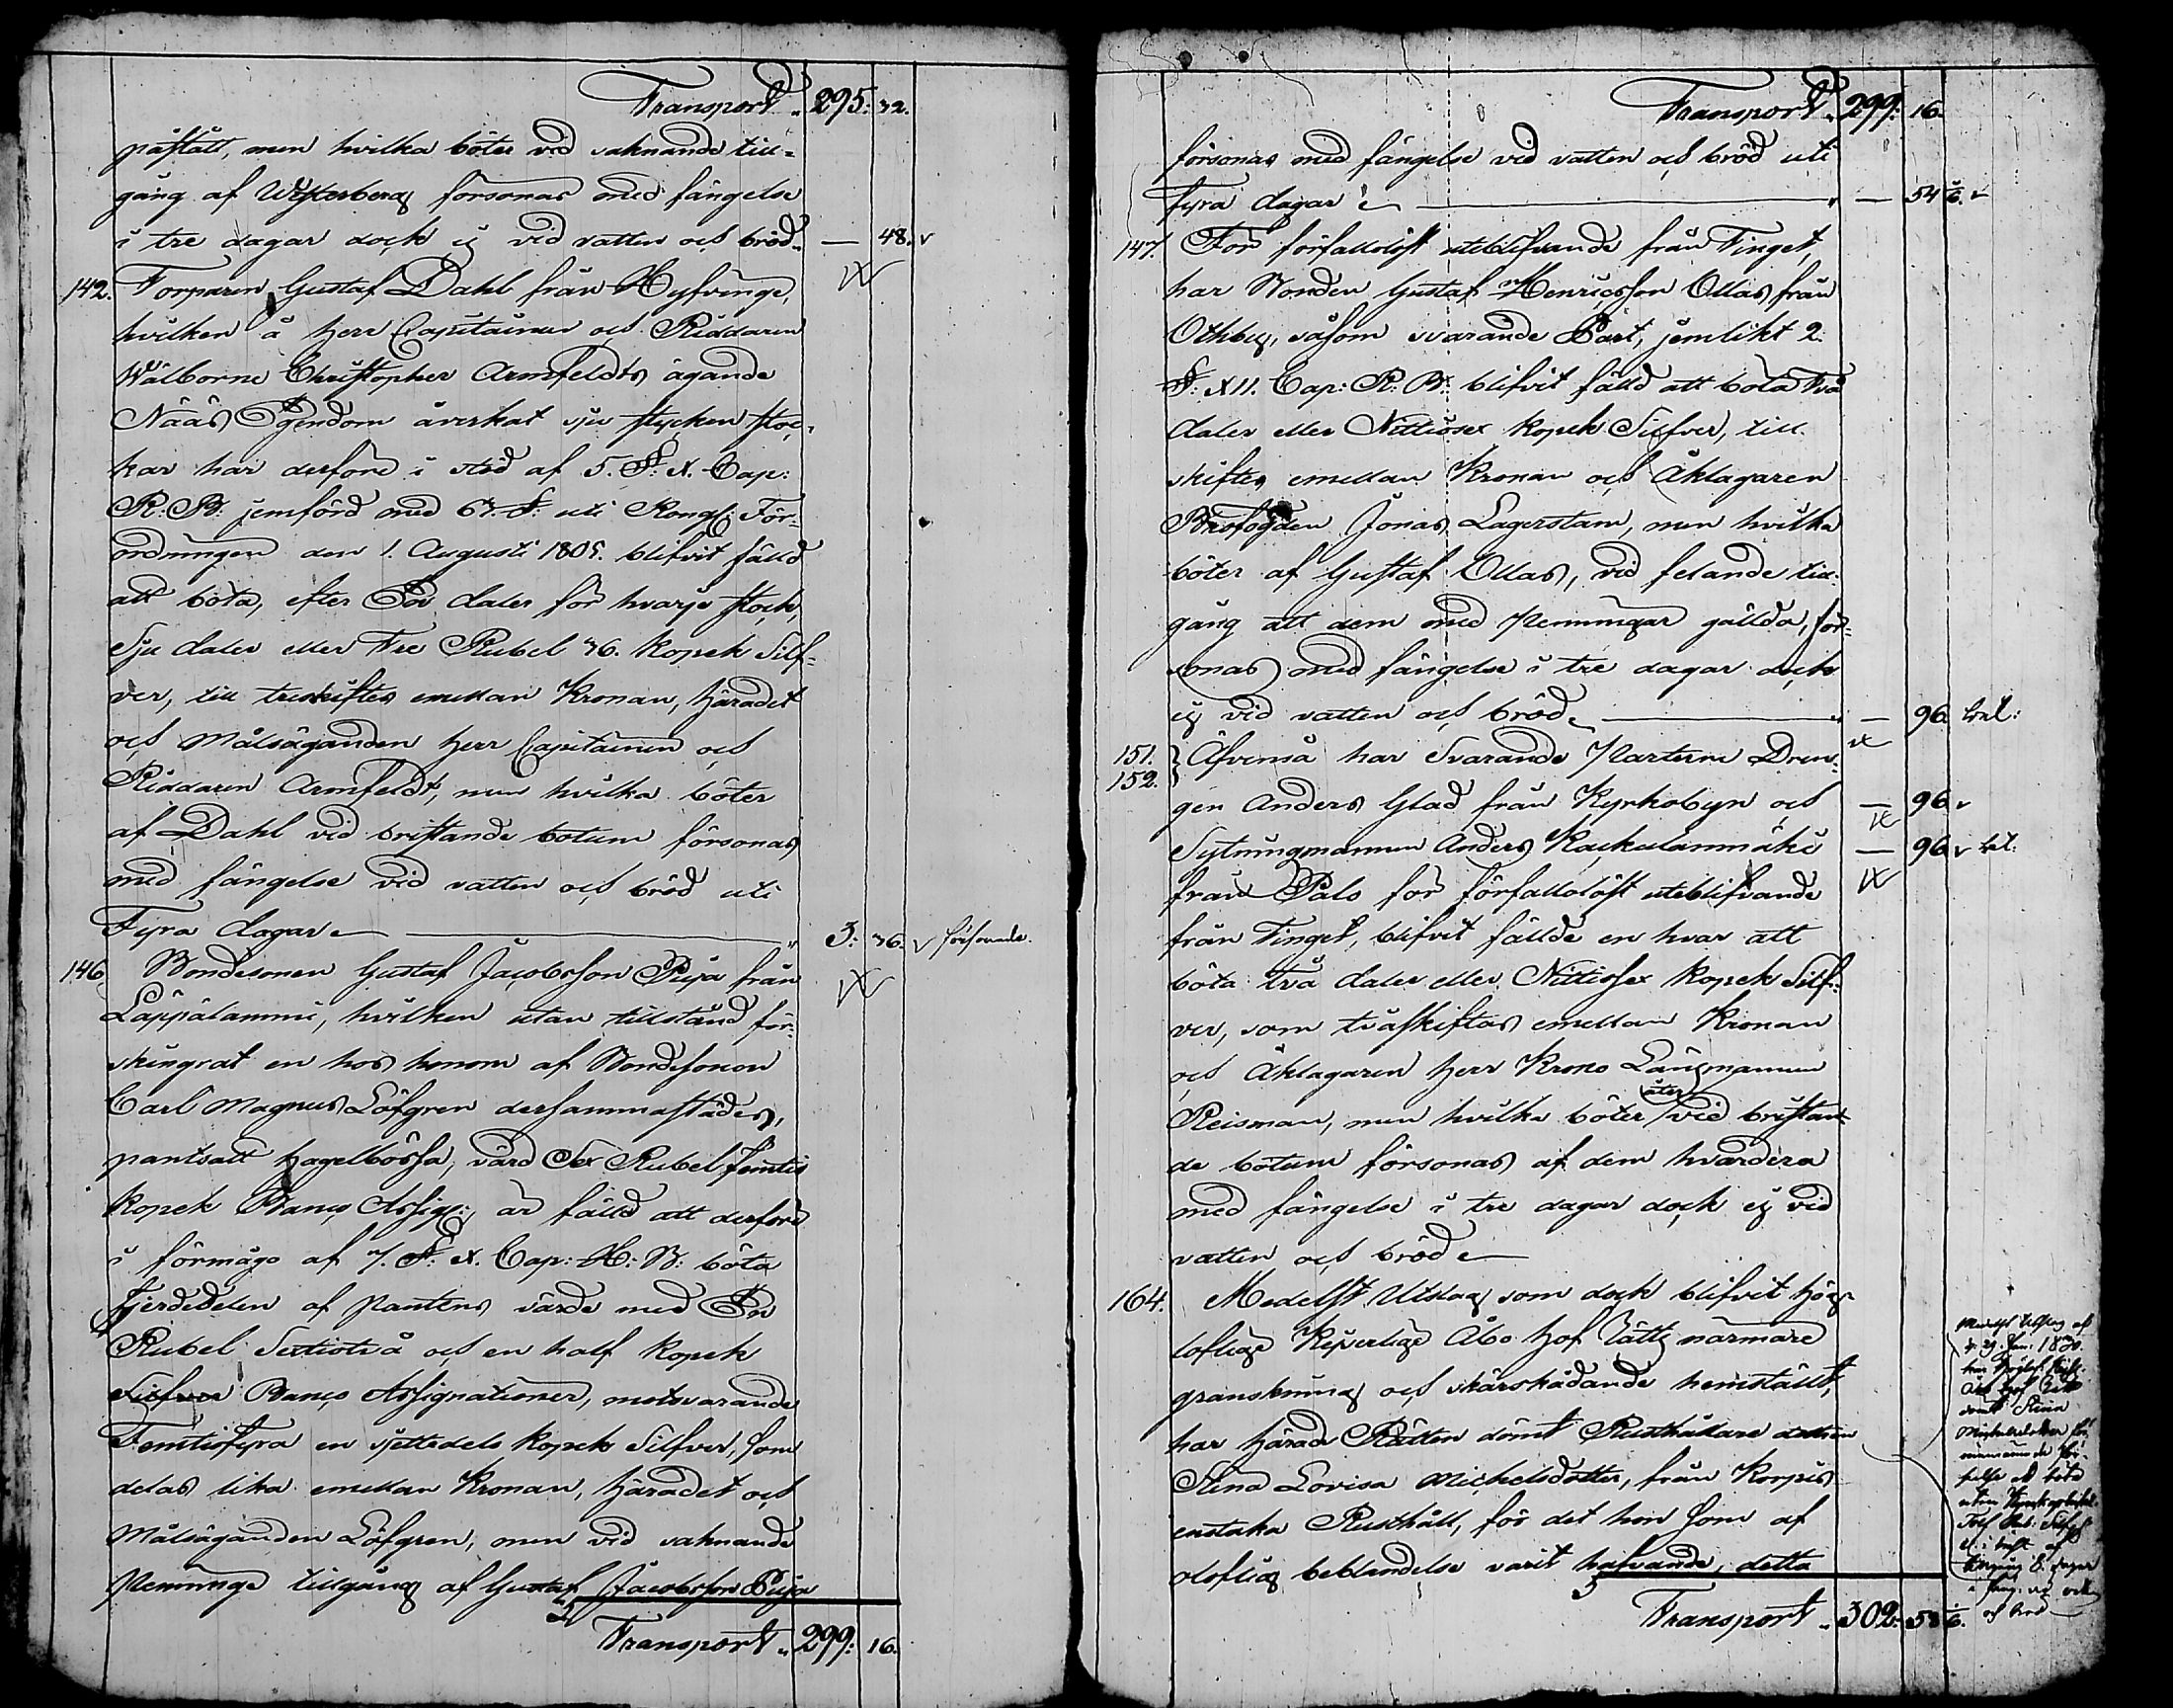 Transport „ 295: 32.
påstått, men hvilka böter vid saknande till-
gång af Westerberg försonas med fängelse
i tre dagar dock ej vid vatten och bröd „ — 48. v
142. Torparen Gustaf Dahl från Hyfvinge,
hvilken å Herr Capitainen och Riddaren
Wälborne Christopher Armfeldts ägande
Nääs Egendom åverkat sju stycken stoc-
kar har derföre i stöd af 5. §: X. Cap:
R: B: jemförd med 67. §: uti Kongl: För-
ordningen den 1. Augusti 1805. blifvit fälld
att böta, efter En daler för hvarje stock,
Sju daler eller Tre Rubel 36. kopek Silf-
ver, till treskiftes emellan Kronan, Häradet
och Målsäganden Herr Capitainen och
Riddaren Armfeldt, men hvilka böter
af Dahl vid bristande botum försonas
med fängelse vid vatten och bröd uti
Fyra dagar „ 3: 36. v försonade.
146. Bondesonen Gustaf Jacobsson Pija från
Lappälammi, hvilken utan tillstånd för-
skingrat en hos honom af Bondesonen
Carl Magnus Löfgren dersammastädes,
pantsatt Hagelbössa, värd Sex Rubel femtio
kopek Banco Assign:, är fälld att derföre
i förmågo af 7. §: X. Cap: H: B: böta
fjerdedelen af Pantens värde med En
Rubel Sextiotvå och en half kopek
Silfver Banco Assignationer, motsvarande
Femtiofyra en sjettedels kopek Silfver, som
delas lika emellan Kronan, Häradet och
Målsäganden Löfgren, men vid saknande
Penninge tillgång af Gustaf Jacobsson Pija
Transport „ 299: 16.
Transport „ 299: 16.
försonas med fängelse vid vatten och bröd uti
fyra dagar „ — 54 1/6. v
147. För förfallolöst uteblifvande från Tinget,
har Bonden Gustaf Henricsson Ollas från
Othby, såsom svarande Part, jemlikt 2.
§: XII. Cap: R: B: blifvit fälld att böta Två
daler eller Nittiosex kopek Silfver, till
skiftes emellan Kronan och Åklagaren
Brofogden Jonas Lagerstam, men hvilka
böter af Gustaf Ollas, vid felande till-
gång att dem med Penningar gällda, för-
sonas med fängelse i tre dagar dock
ej vid vatten och bröd. „ — 96. bet:
151. 152. } Äfvenså har Svarande Parterne Dren-
gen Anders Glad från Kyrkobyn och — 96. v
Sytningmannen Anders Kackulanmäki — 96. v bet:
från Palo för förfallolöst uteblifvande
från Tinget, blifvit fällde en hvar att
böta två daler eller Nittiosex kopek Silf-
ver, som tvåskiftas emellan Kronan
och Åklagaren Herr Krono Länsmannen
Reisman, men hvilka böter åter vid bristan-
de botum försonas af dem hvardera
med fängelse i tre dagar dock ej vid
vatten och bröd
164. Medelst Utslag som dock blifvit Hög-
loflige Kejserlige Åbo Hof Rätts närmare
granskning och skärskådande hemställt,
har Härads Rätten dömt Rusthållare dottren
Stina Lovisa Michelsdotter, från Korpis
enstaka Rusthåll, för det hon som af
oloflig beblandelse varit hafvande, detta
Transport „ 302: 58 1/6.
Medelst Utslag af
d. 29. Jan: 1830.
har Höglofl. Kejs:
Åbo Hof Rätt
dömt Stina
Michelsdotter
att böta
Rub: Silf:
8. dagar
och bröd